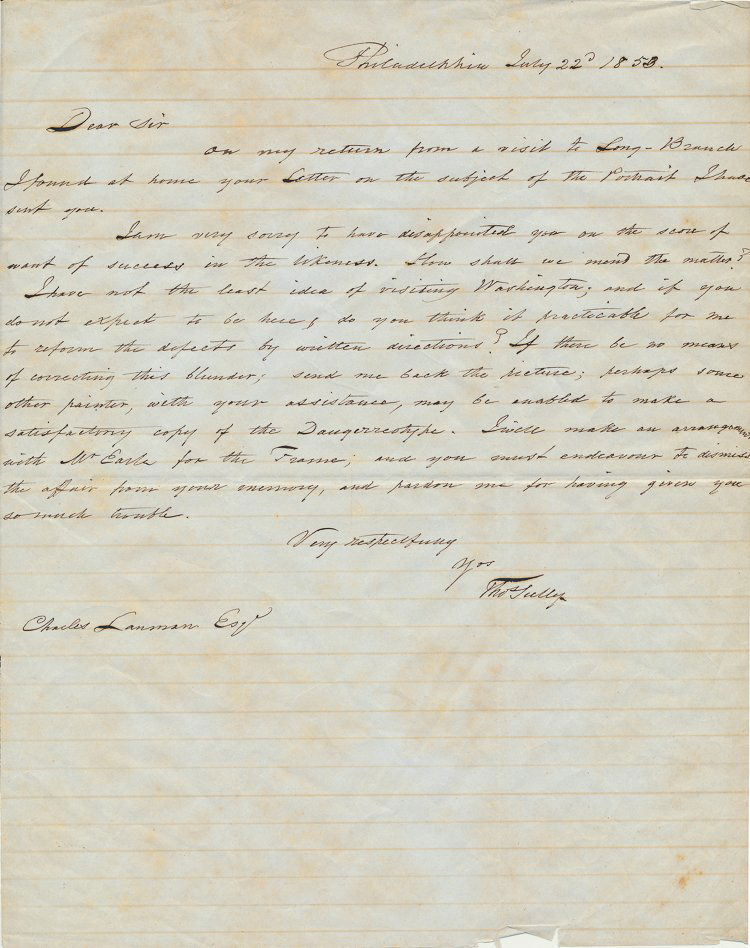 Philadelphia July 22d 1853.
Dear Sir
On my return from a visit to Long-Branch
I found at home your Letter on the subject of the Portrait I have
sent you.
I am very sorry to have disappointed you on the score of
want of success in the likeness. How shall we mend the matter?
I have not the least idea of visiting Washington; and if you
do not expect to be here, do you think it practicable for me
to reform the defects by written directions? If there be no means
of correcting this blunder; send me back the picture; perhaps some
other painter, with your assistance, may be enabled to make a
satisfactory copy of the Daugerreotype. I will make an arrangement
with Mr Earle for the Frame; and you must endeavour to dismiss
the affair from your memory, and pardon me for having given you
so much trouble.
Very respectfully
Yos
Thos Sully
Charles Lanman Esqr